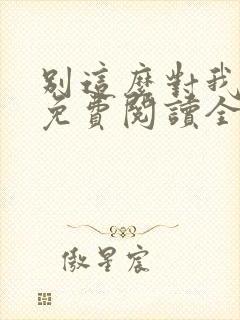 別這麼對我
免費閱讀全
傲星宸